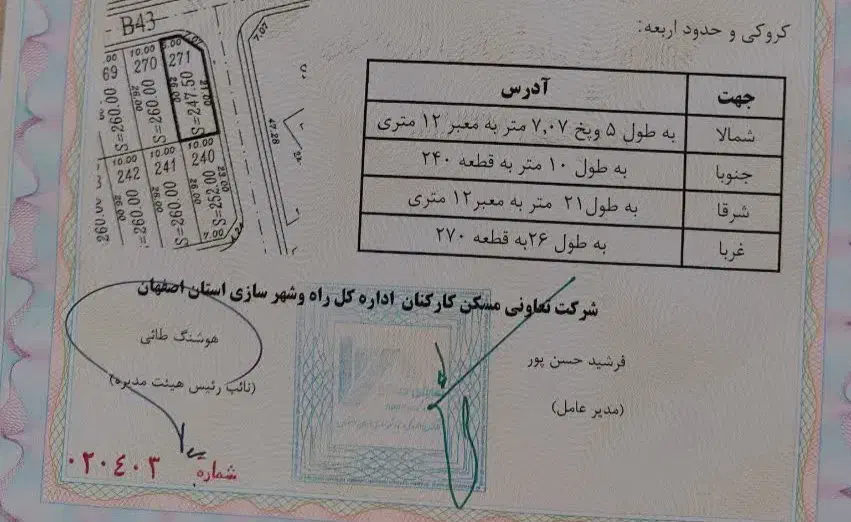 کروکی و حدود اربعه:
جهت آدرس
شمالا به طول ۵ وپخ ۷,۰۷ متر به معبر ۱۲ متری
جنوبا به طول ۱۰ متر به قطعه ۲۴۰
شرقا به طول۲۱ متر به معبر۱۲ متری
غربا به طول ۲۶به قطعه ۲۷۰
B43
7.07
10.00 10.00 5.00 7.07
69 270 271
S=260.00 26.00 S=260.00 26.00 S=247.50 21.00
47.28
10.00 10.00 10.00
242 241 240
260.00 26.00 S=260.00 26.00 S=260.00 26.00 S=252.00
7.00
شرکت تعاونی مسکن کارکنان اداره کل راه وشهر سازی استان اصفهان
فرشید حسن پور
(مدیر عامل)
هوشنگ طائی
(نائب رئیس هیئت مدیره)
شماره ۰۲۰۴۰۳